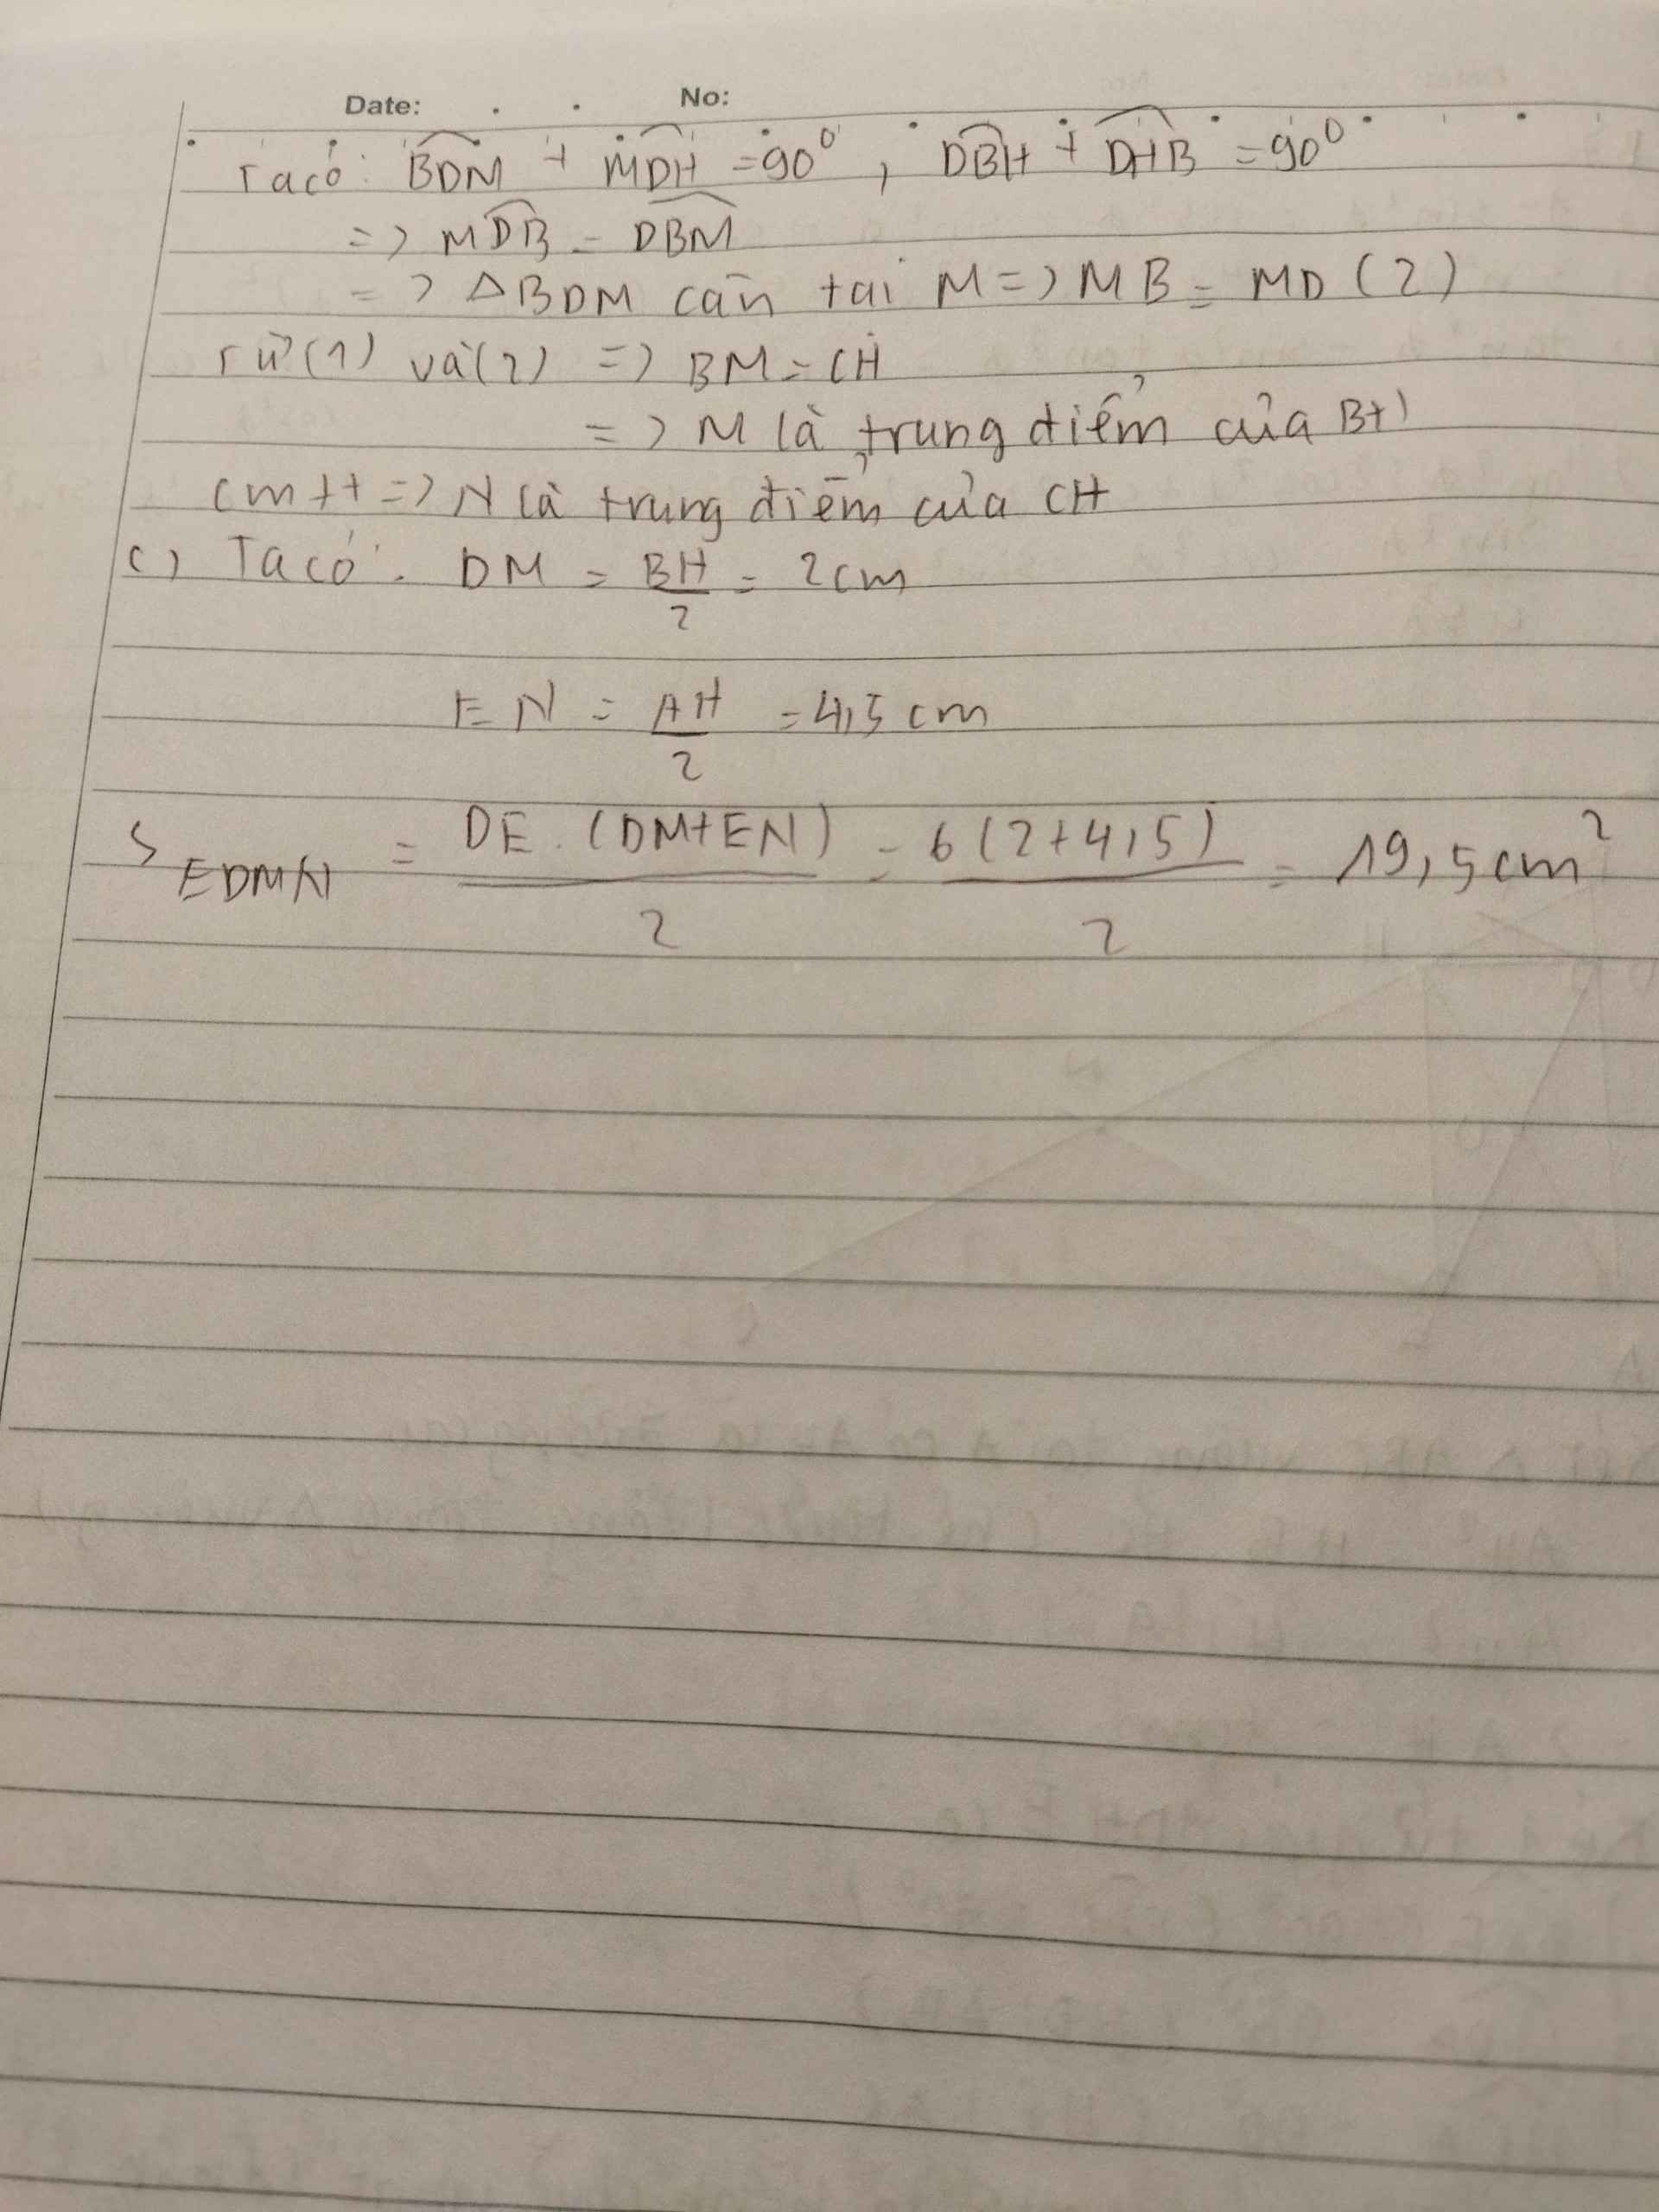 Date: No:
Ta có: BDM + MDH = 90⁰, DBH + DHB = 90⁰
=> MDB = DBM
=> △BDM cân tại M => MB = MD (2)
Từ (1) và (2) => BM = CH
=> M là trung điểm của BH
cmtt => N là trung điểm của CH
c) Ta có: DM = BH/2 = 2cm
EN = AH/2 = 4,5 cm
S EDMN = DE.(DM+EN)/2 = 6(2+4,5)/2 = 19,5cm²